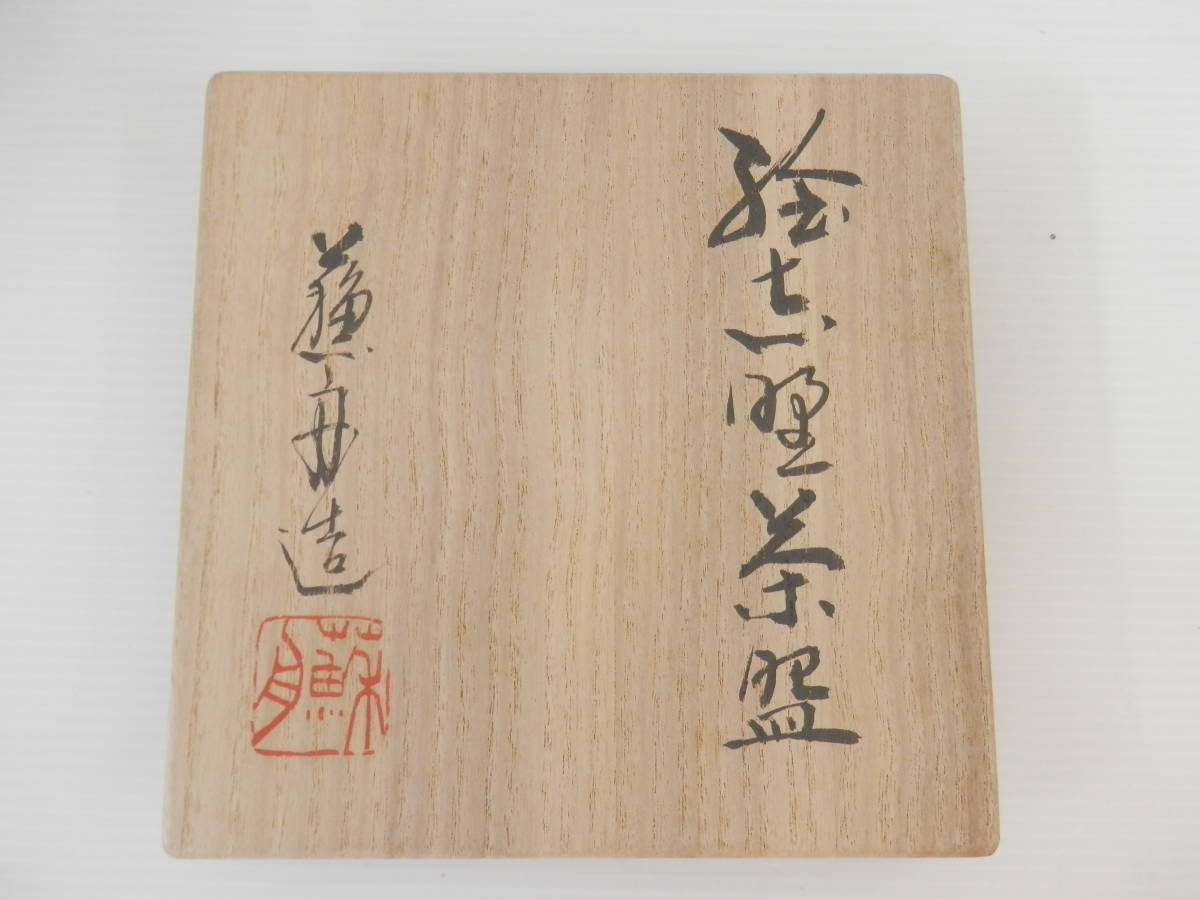 絵志野茶盌
蘇舟造
蘇舟